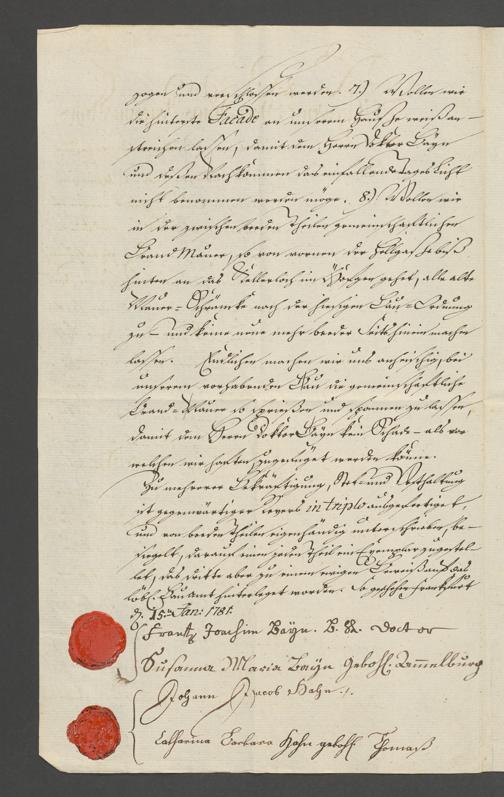 zogen und verschlossen werden. 7.) Wollen wir
die hinterste Facade an unserem Hauße weiß an-
streichen lassen, damit dem Herrn Doktor Bäyn
und deßen Nachkommen das einfallende Tages Licht
nicht benommen werden möge. 8.) Wollen wir
in der zwischen beeden Theilen gemeinschaftlichen
Brand Mauer, so von vornen der Höllgasse biß
hinten an das Kellerloch im Höfgen gehet, alle alte
Mauer-Schräncke nach der hiesigen Bau-Ordnung
zu- und keine neue mehr beeder Seits hinein machen
lassen. Endlichen machen wir uns anheischig, bei
unserem vorhabenden Bau die gemeinschaftliche
Brand-Mauer so sprießen und spannen zu lassen,
damit dem Herrn Doktor Bäyn kein Schade- als vor
welchen wir haften zugefüget werden könne.
Zu mehrerer Bekräftigung, Stet- und Vesthaltung
ist gegenwärtiger Revers in triplo ausgefertiget
und von beeden Theilen eigenhändig unterschrieben, be-
siegelt, daraus einem jeden Theil ein Exemplar zugestel-
let, das dritte aber zu einem ewigen Beweiß auf das
löbl. Bau Amt hinterleget worden. So geschehen Franckfurt
d. 15.ten Jan: 1781.
Frantz Joachim Bäyn. B. R. Doctor
Susanna Maria Bäyn gebohl. Ammelburg
Johann Jacob Hahn
Catharina Barbara Hahn gebohl. Thomaß